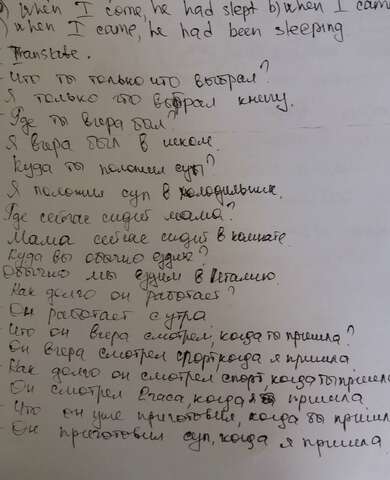 a) when I come, he had slept b) when I came
) when I came, he had been sleeping.
Translate.
- Что ты только что выбрал?
- Я только что выбрал книгу.
- Где ты вчера был?
Я вчера был в
Куда ты положил суп?
Я положил суп в холодильник.
- Где сейчас сидит мама?
- Мама сейчас сидит в комнате.
Куда вы обычно ездите?
Обычно мы ездим в Италию.
- Как долго он работает?
- Он работает с утра.
- Что он вчера смотрел, когда ты пришла?
- Он вчера смотрел спорт, когда я пришла
- Как долго он смотрел спорт, когда ты пришла
- Он смотрел 2 часа, когда я пришла
- Что он уже приготовил, когда ты пришл
- Он приготовил суп, когда я пришла